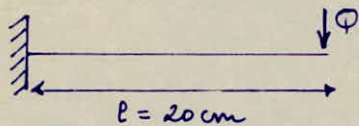 Q
l = 20 cm